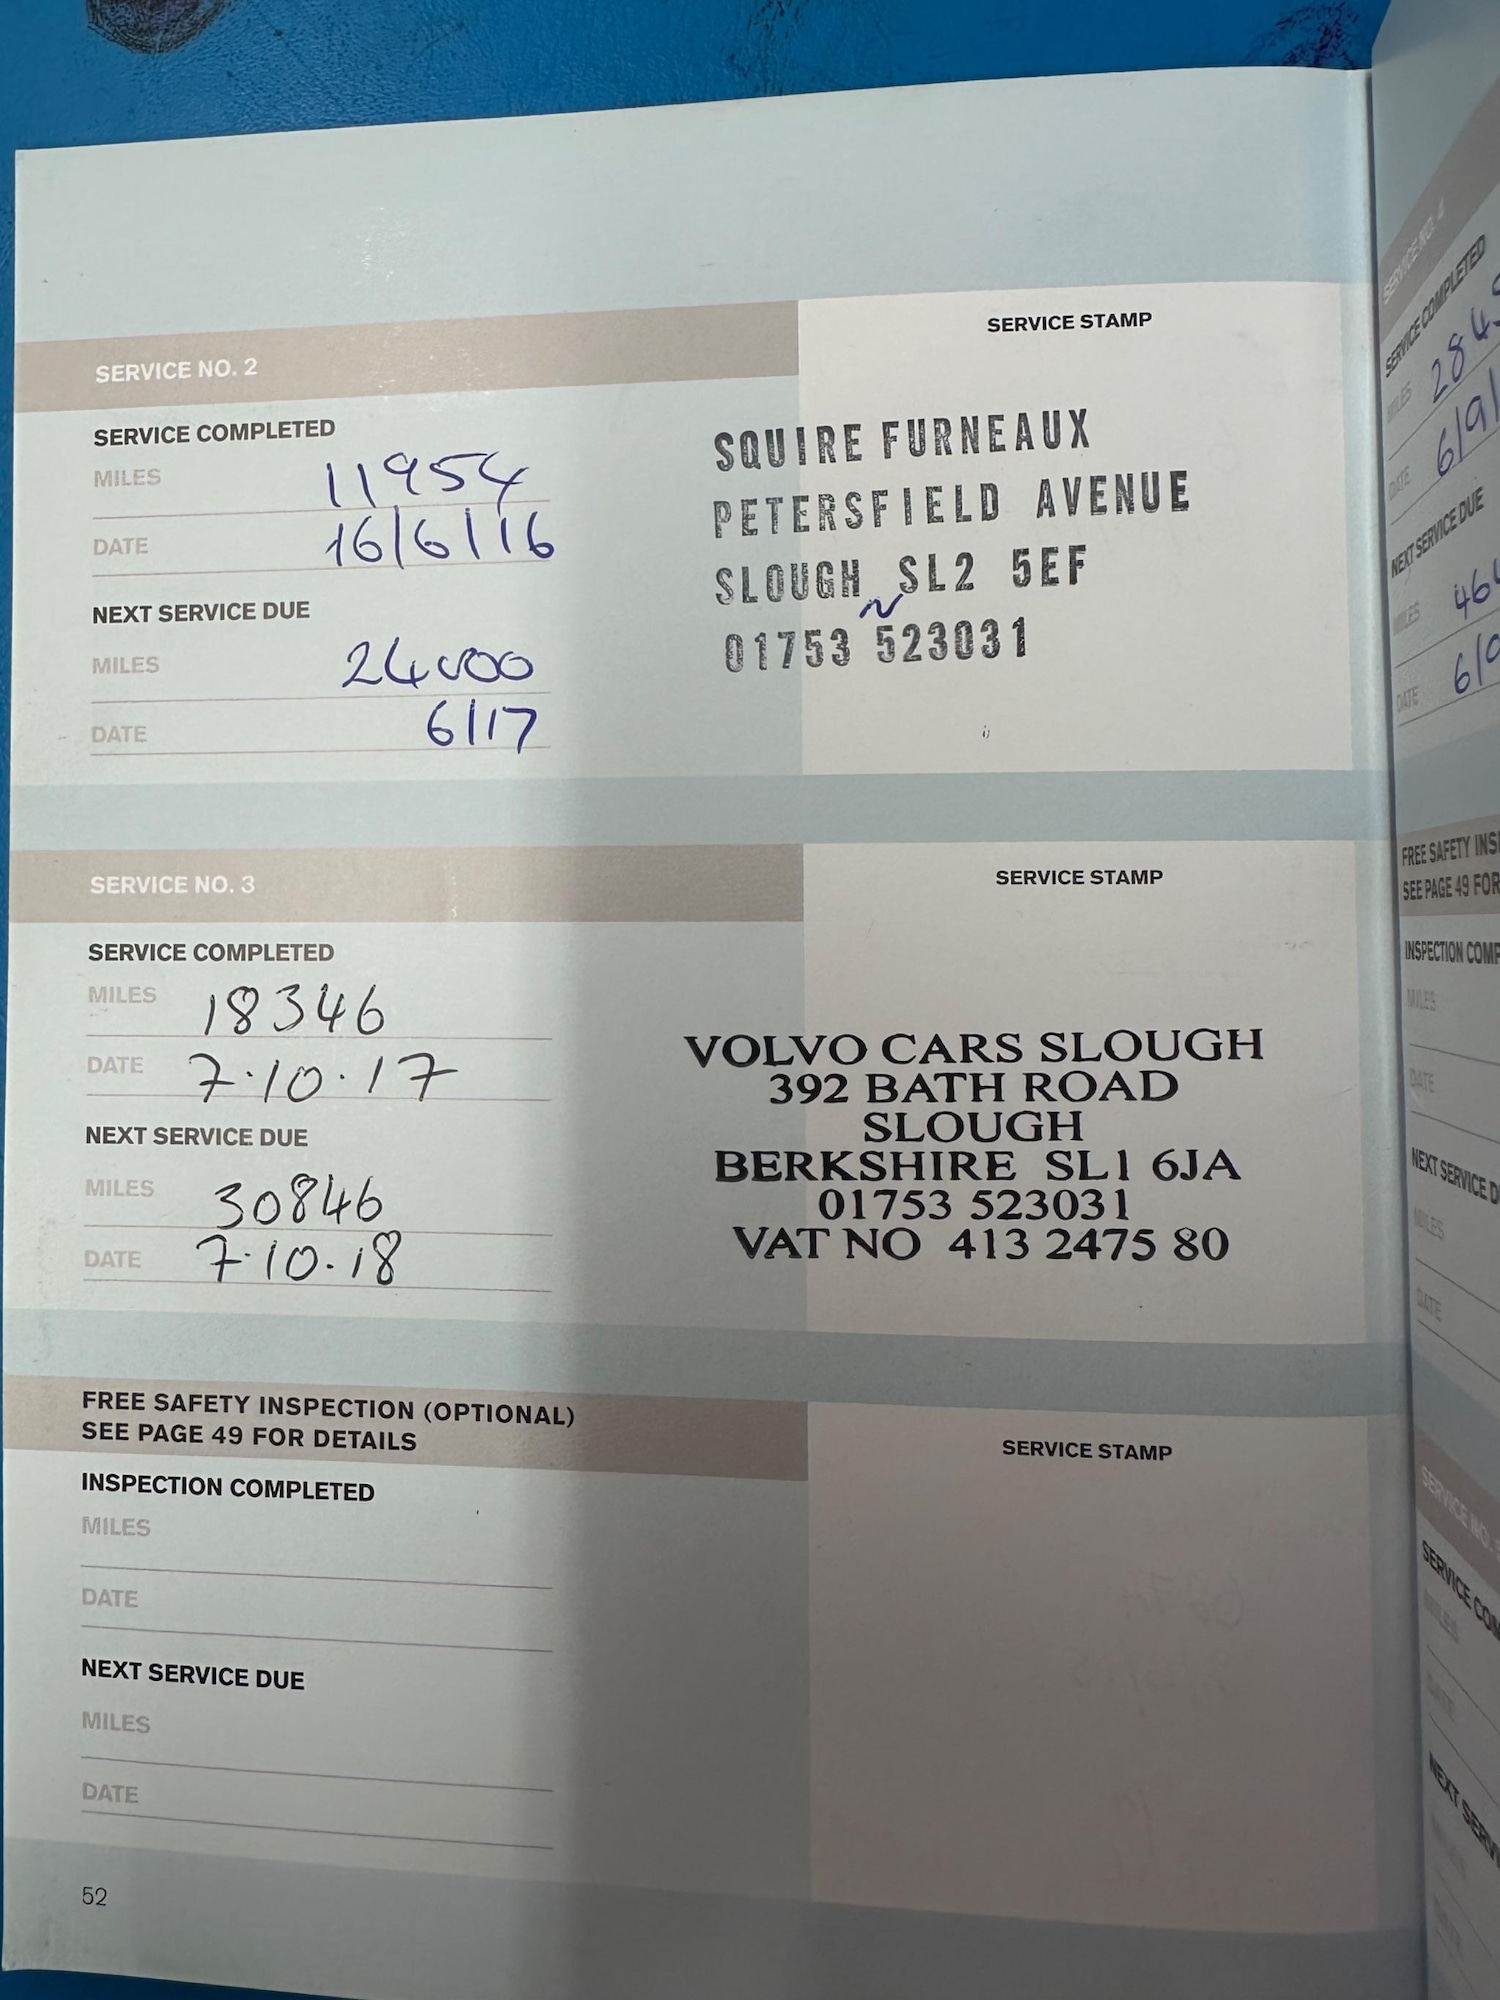 SERVICE NO. 2
SERVICE STAMP
SERVICE COMPLETED
MILES 11954
DATE 16/6/16
NEXT SERVICE DUE
MILES 24000
DATE 6/17
SQUIRE FURNEAUX
PETERSFIELD AVENUE
SLOUGH SL2 5EF
01753 523031
SERVICE NO. 3
SERVICE STAMP
SERVICE COMPLETED
MILES 18346
DATE 7.10.17
NEXT SERVICE DUE
MILES 30846
DATE 7.10.18
VOLVO CARS SLOUGH
392 BATH ROAD
SLOUGH
BERKSHIRE SL1 6JA
01753 523031
VAT NO 413 2475 80
FREE SAFETY INSPECTION (OPTIONAL)
SEE PAGE 49 FOR DETAILS
SERVICE STAMP
INSPECTION COMPLETED
MILES
DATE
NEXT SERVICE DUE
MILES
DATE
52
SERVICE NO. 4
SERVICE COMPLETED
MILES
DATE 6/9/
NEXT SERVICE DUE
MILES
DATE
FREE SAFETY
SEE PAGE 49 FOR
INSPECTION
MILES
DATE
NEXT SERVICE
MILES
DATE
SERVICE NO.
SERVICE
MILES
DATE
NEXT